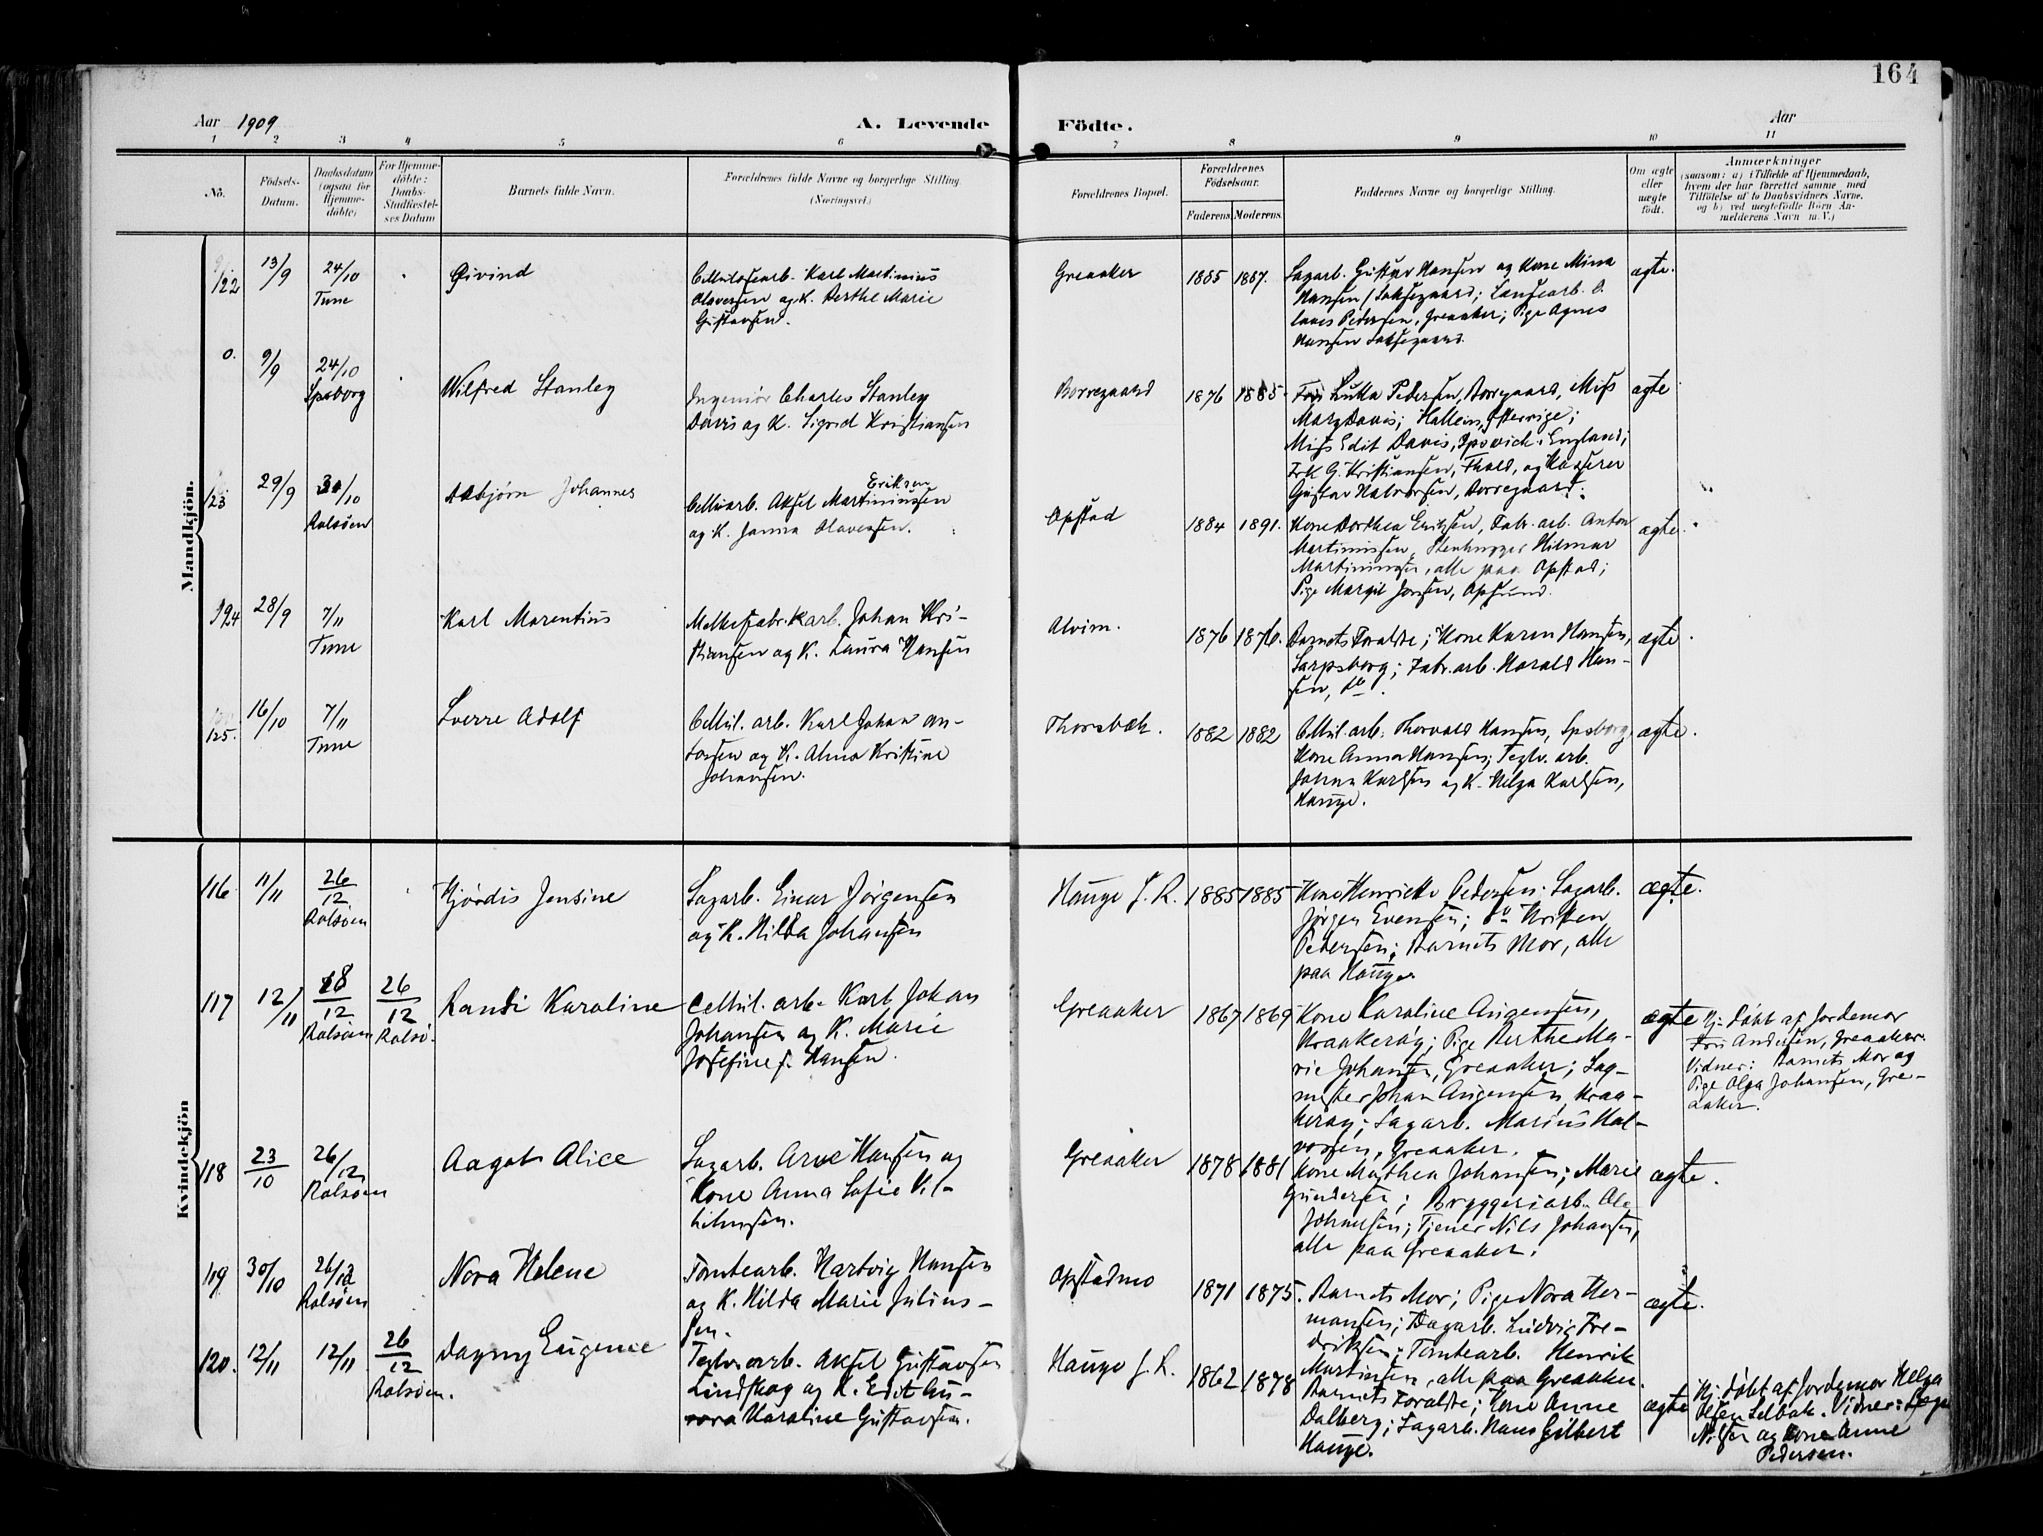 164
Aar 1909
A. Levende Födte.
Aar
1 2 3 4 5 6 7 8 9 10 11
No.
Födsels-
Datum.
Daabsdatum
(ogsaa for
Hjemme-
döbte)
For Hjemme-
döbte:
Daabs-
Stadfæstel-
ses Datum
Barnets fulde Navn.
Forældrenes fulde Navne og borgerlige Stilling.
(Næringsvei.)
Forældrenes Bopæl.
Forældrenes
Födselsaar.
Faderens.
Moderens.
Faddernes Navne og borgerlige Stilling.
Om ægte
eller
uægte
födt.
Anmærkninger
(saasom: a) i Tilfælde af Hjemmedaab,
hvem der har forrettet samme med
Tilföielse af to Daabsvidners Navne,
og b) ved uægtefödte Börn An-
melderens Navn m. V.)
Mandkjön.
122
13/9
24/10
Tune
Øivind
Cellulosearb. Karl Martinius
Olavessen og K. Berthe Marie
Gustavsen.
Greaaker
1885
1887.
Sagarb. Gustav Hansen og Kone Mina
Hansen, Laksegaard;
Pedersen, Greaaker; Pige Agnes
Hansen Laksegaard.
ægte.
0.
9/9
24/10
Spsborg
Wilfred Stanley
Ingeniør Charles Stanley
Davis og K. Sigrid Kristiansen
Borregaard
1876
1885
Pedersen, Borregaard, Miss
Mary Davis; Hallein, Østerrige;
Miss Edit Davis, Ipsvich, England;
Frk G. Kristiansen, og Kasserer
Gustav Halvorsen, Borregaard.
ægte
123
29/9
30/10
Rolsøen
Asbjørn Johannes
Eriksen
Celluarb. Aksel Martiniussen
og K. Janna Olavessen.
Opstad
1884
1891.
Kone Dorthea Eriksen, Fabr. arb. Anton
Martinussen, Stenhugger Hilmar
Martiniussen, alle paa Opstad;
Pige Margit Jonsen, Opsund.
ægte.
124
28/9
7/11
Tune
Karl Marentius
Melkefabrikarb. Johan Kri-
stiansen og K. Laura Hansen
Alvim.
1876
1876.
Barnets Foraldre; Kone Karen Hansen,
Sarpsborg; Fabr. arb. Harald Han-
sen, do.
ægte.
125.
16/10
7/11
Tune
Sverre Adolf
Cellul. arb. Karl Johan An-
tonsen og K. Alma Kristine
Johansen.
Thorsbæk.
1882
1882
Cellul. arb. Thorvald Hansen, Spsborg,
Kone Anna Hansen; Teglv. arb.
Johan Karlsen og K. Helga Karlsen,
Hauge.
ægte.
Kvindekjön
116
11/11
26/12
Rolsøen
Hjørdis Jensine
Sagarb. Einar Jørgensen
og K. Hilda Johansen
Hauge f. R.
1885
1885
Kone Henriette Pedersen; Sagarb.
Jørgen Evensen; do
Pedersen; Barnets Mor, alle
paa Hauge.
ægte.
117
12/11
18/12
Rolsøen
26/12
Rolsø.
Randi Karoline
Cellul. arb. Karl Johan
Johansen og K. Marie
Josefine f. Hansen.
Greaaker
1867
1869
Kone Karoline Augensen,
Kraakerøy; Pige Berthe Ma-
rie Johansen, Greaaker; Sag-
mester Johan Augensen, Kraa-
kerøy; Sagarb. Marius Hal-
vorsen, Greaaker.
ægte
Hj. døbt af Jordemor
Fru Andersen, Greaaker.
Vidner: Barnets Mor og
Pige Olga Johansen, Gre-
aaker.
118
23/10
26/12
Rolsøen
Aagot Alice
Sagarb. Arve Hansen og
Kone Anna Sofie Vil-
helmsen.
Greaaker
1878
1881
Kone Mathea Johansen; Marie
Gundersen; Bryggeriarb. Ole
Johansen; Tjener Nils Johansen,
alle paa Greaaker.
ægte.
119
30/10
26/12
Rolsøen
Nora Helene
Tomtearb. Hartvig Hansen
og K. Hilda Marie Julius-
sen.
Opstadmo
1871
1875.
Barnets Mor; Pige Nora Her-
mansen; Dagarb. Ludvig Fre-
driksen; Tomtearb. Henrik
Martinsen, alle paa Greaaker.
ægte.
120.
12/11
12/11
26/12
Rolsøen.
Dagny Eugenie
Teglv. arb. Aksel Gustavsen
Lindskog og K. Edit Au-
rora Karoline Gustavsen.
Hauge f. R.
1862
1878
Barnets Foraldre; Kone Anne
Dalberg; Sagarb. Hans Gilbert
Hauge.
ægte
Hj. døbt af Jordemor Helga
Olsen Selbak. Vidner:
Nilsen og Kone Anne
Pedersen.